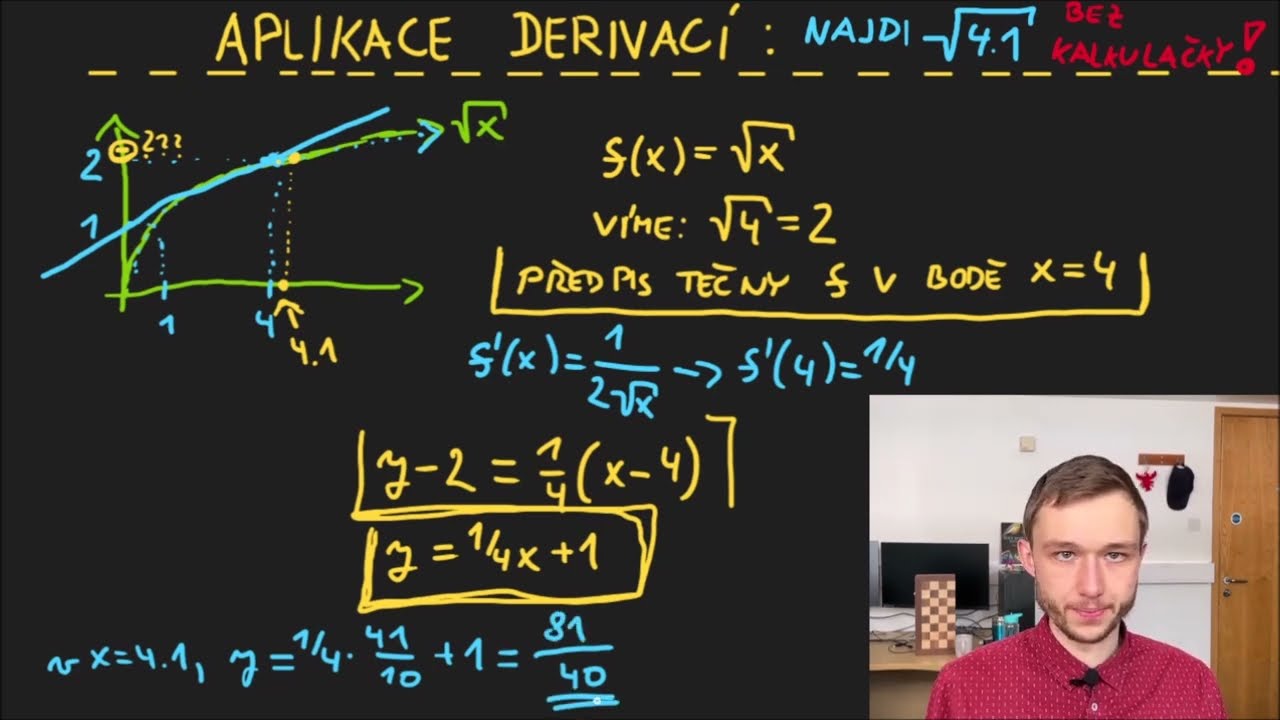 APLIKACE DERIVACÍ: NAJDI √4.1 BEZ KALKULAČKY!
√x
2 ???
1
1 4
4.1
f(x) = √x
VÍME: √4 = 2
PŘEDPIS TEČNY f V BODĚ x=4
f'(x) = 1/(2√x) → f'(4) = 1/4
y-2 = 1/4 (x-4)
y = 1/4x+1
v x=4.1, y = 1/4 · 41/10 + 1 = 81/40